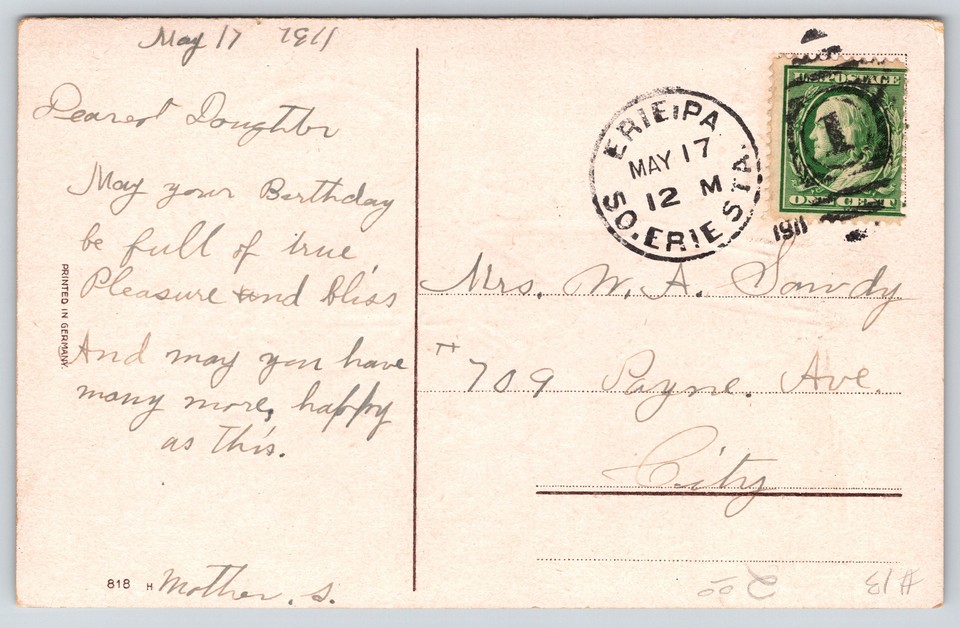 May 17 1911
Dearest Doughter
May your Birthday
be full of true
Pleasure and bliss
And may you have
many more, happy
as this.
Mother. S.
PRINTED IN GERMANY.
818 H
ERIE, PA.
MAY 17
12 M
1911
SO. ERIE STA.
U.S. POSTAGE
1
ONE CENT
Mrs. W. A. Sawdy
# 709 Payne. Ave.
City
2 00
A13